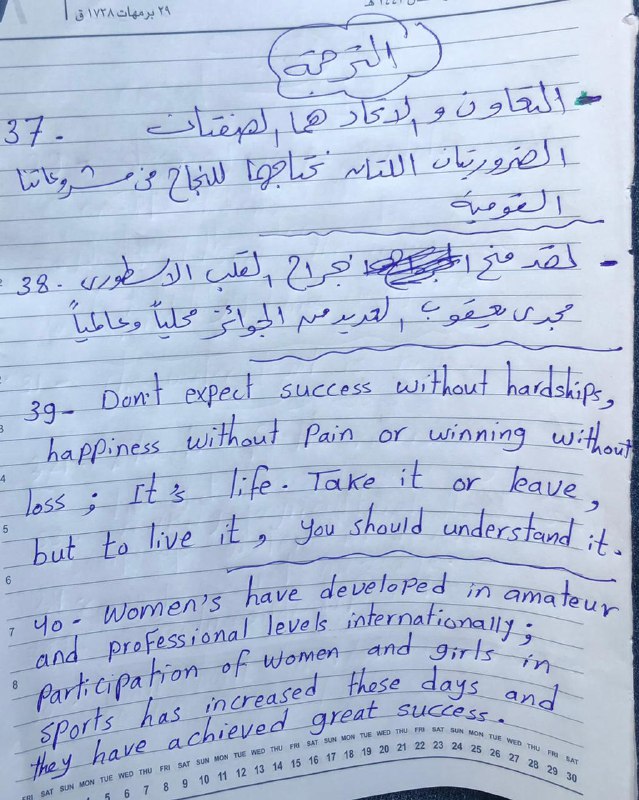 ٢٩ برمهات ١٧٣٨ ق
الترجمة
37. - التعاون و الاتحاد هما الصفتان
الضروريتان اللتان نحتاجها للنجاح في مشروعاتنا
القومية
38. - لقد منح جراح القلب الأسطورى
مجدى يعقوب العديد من الجوائز محلياً وعالمياً
39- Don't expect success without hardships,
happiness without Pain or winning without
loss ; It's life. Take it or leave,
but to live it, you should understand it.
40- Women's have developed in amateur
and professional levels internationally;
Participation of women and girls in
sports has increased these days and
they have achieved great success.
FRI SAT SUN MON TUE WED THU FRI SAT SUN MON TUE WED THU FRI SAT SUN MON TUE WED THU FRI SAT SUN MON TUE WED THU FRI SAT
5 6 7 8 9 10 11 12 13 14 15 16 17 18 19 20 21 22 23 24 25 26 27 28 29 30